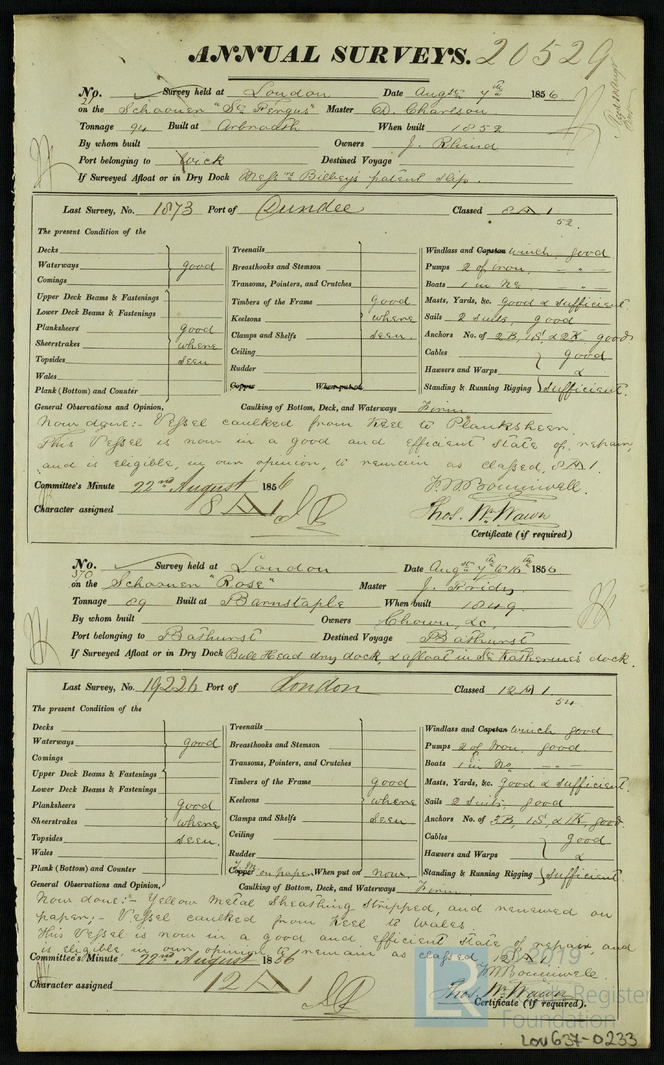 ANNUAL SURVEYS. 20529
No. Survey held at London Date Augst 7th 1856
on the Schooner "St Fergus" Master D. Charlson
Tonnage 94 Built at Arbroath When built 1852
By whom built Owners J. Rhind
Port belonging to Wick Destined Voyage
If Surveyed Afloat or in Dry Dock Messrs Bilbey's patent slip.
Last Survey, No. 1873 Port of Dundee Classed 8 A 1
52.
The present Condition of the
Decks
Waterways good
Comings
Upper Deck Beams & Fastenings
Lower Deck Beams & Fastenings
Planksheers good
Sheerstrakes where
Topsides seen
Wales
Plank (Bottom) and Counter
Treenails
Breasthooks and Stemson
Transoms, Pointers, and Crutches
Timbers of the Frame good
Keelsons where
Clamps and Shelfs seen.
Ceiling
Rudder
Copper When put on
Windlass and Capstan winch, good
Pumps 2 of Iron, " -
Boats 1 in No " -
Masts, Yards, &c. Good & Sufficient
Sails 2 suits, good
Anchors No. of 2B, 1S, & 2K good
Cables good
Hawsers and Warps &
Standing & Running Rigging sufficient.
General Observations and Opinion, Caulking of Bottom, Deck, and Waterways Firm
Now done:- Vessel caulked from Keel to Planksheer.
This Vessel is now in a good and efficient state of repair,
and is eligible, in our opinion, to remain as classed, 8 A 1.
Committee's Minute 22nd August 1856
Character assigned 8 A 1
Thos. Wm Wawn
Certificate (if required)
No. Survey held at London Date Augst 7th to 16th 1856
570
on the Schooner "Rose" Master J. Fridy
Tonnage 89 Built at Barnstaple When built 1849
By whom built Owners Chown, &c.
Port belonging to Bathurst Destined Voyage Bathurst
If Surveyed Afloat or in Dry Dock Bull Head dry dock, & afloat in St Katherine's dock.
Last Survey, No. 19226 Port of London Classed 12 A 1
54
The present Condition of the
Decks
Waterways good
Comings
Upper Deck Beams & Fastenings
Lower Deck Beams & Fastenings
Planksheers good
Sheerstrakes where
Topsides seen.
Wales
Plank (Bottom) and Counter
Treenails
Breasthooks and Stemson
Transoms, Pointers, and Crutches
Timbers of the Frame good
Keelsons where
Clamps and Shelfs seen
Ceiling
Rudder
Y.M.
Copper on paper When put on now
Windlass and Capstan winch good
Pumps 2 of Iron, good
Boats 1 in No " -
Masts, Yards, &c. Good & Sufficient.
Sails 2 suits, good
Anchors No. of 2B, 1S, & 1K, good.
Cables good
Hawsers and Warps &
Standing & Running Rigging sufficient.
General Observations and Opinion, Caulking of Bottom, Deck, and Waterways Firm
Now done:- Yellow Metal Sheathing stripped, and renewed on
paper;- Vessel caulked from Keel to Wales
This Vessel is now in a good and efficient state of repair, and
is eligible, in our opinion to remain as classed 12 A 1.
Committee's Minute 22nd August 1856
Character assigned 12 A 1
Thos. Wm Wawn
Certificate (if required).
LR 2019
Lloyd's Register
Foundation
LON637-0233